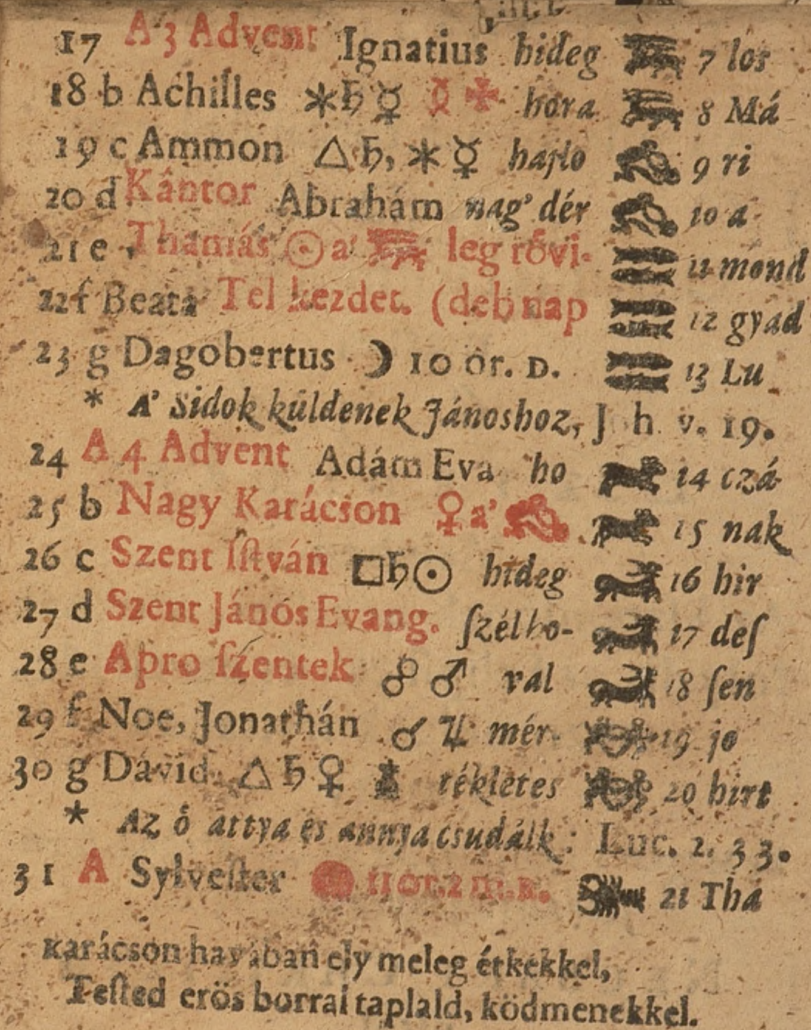 17 A 3 Advent Ignatius hideg 7 los
18 b Achilles ✶♄☿ ✠ hora 8 Má
19 c Ammon △♄, ✶☿ hajlo 9 ri
20 d Kántor Abrahám nag' dér 10 a
21 e Thamás ☉ a' leg rővi- 11 mond
22 f Beata Tel kezdet. (deb nap 12 gyad
23 g Dagobertus ☽ 10 ór. D. 13 Lu
* A' Sidok küldenek Jánoshoz, Joh v. 19.
24 A 4 Advent Adám Eva ho 14 czá
25 b Nagy Karácson ♀ a' 15 nak
26 c Szent Iſtván □♄☉ hideg 16 hir
27 d Szent János Evang. ſzélho- 17 deſ
28 e Apro ſzentek ☍ ♂ val 18 ſen
29 f Noe, Jonathán ☌ ♃ mér- 19 jo
30 g Dávid. △♄♀ tékletes 20 hirt
* Az ő attya és annya csudálk: Luc. 2. 33.
31 A Sylveſter 11 or. 2 m. R. 21 Thá
Karácson havában ely meleg étkekkel,
Teſted erös borral taplald, ködmenekkel.